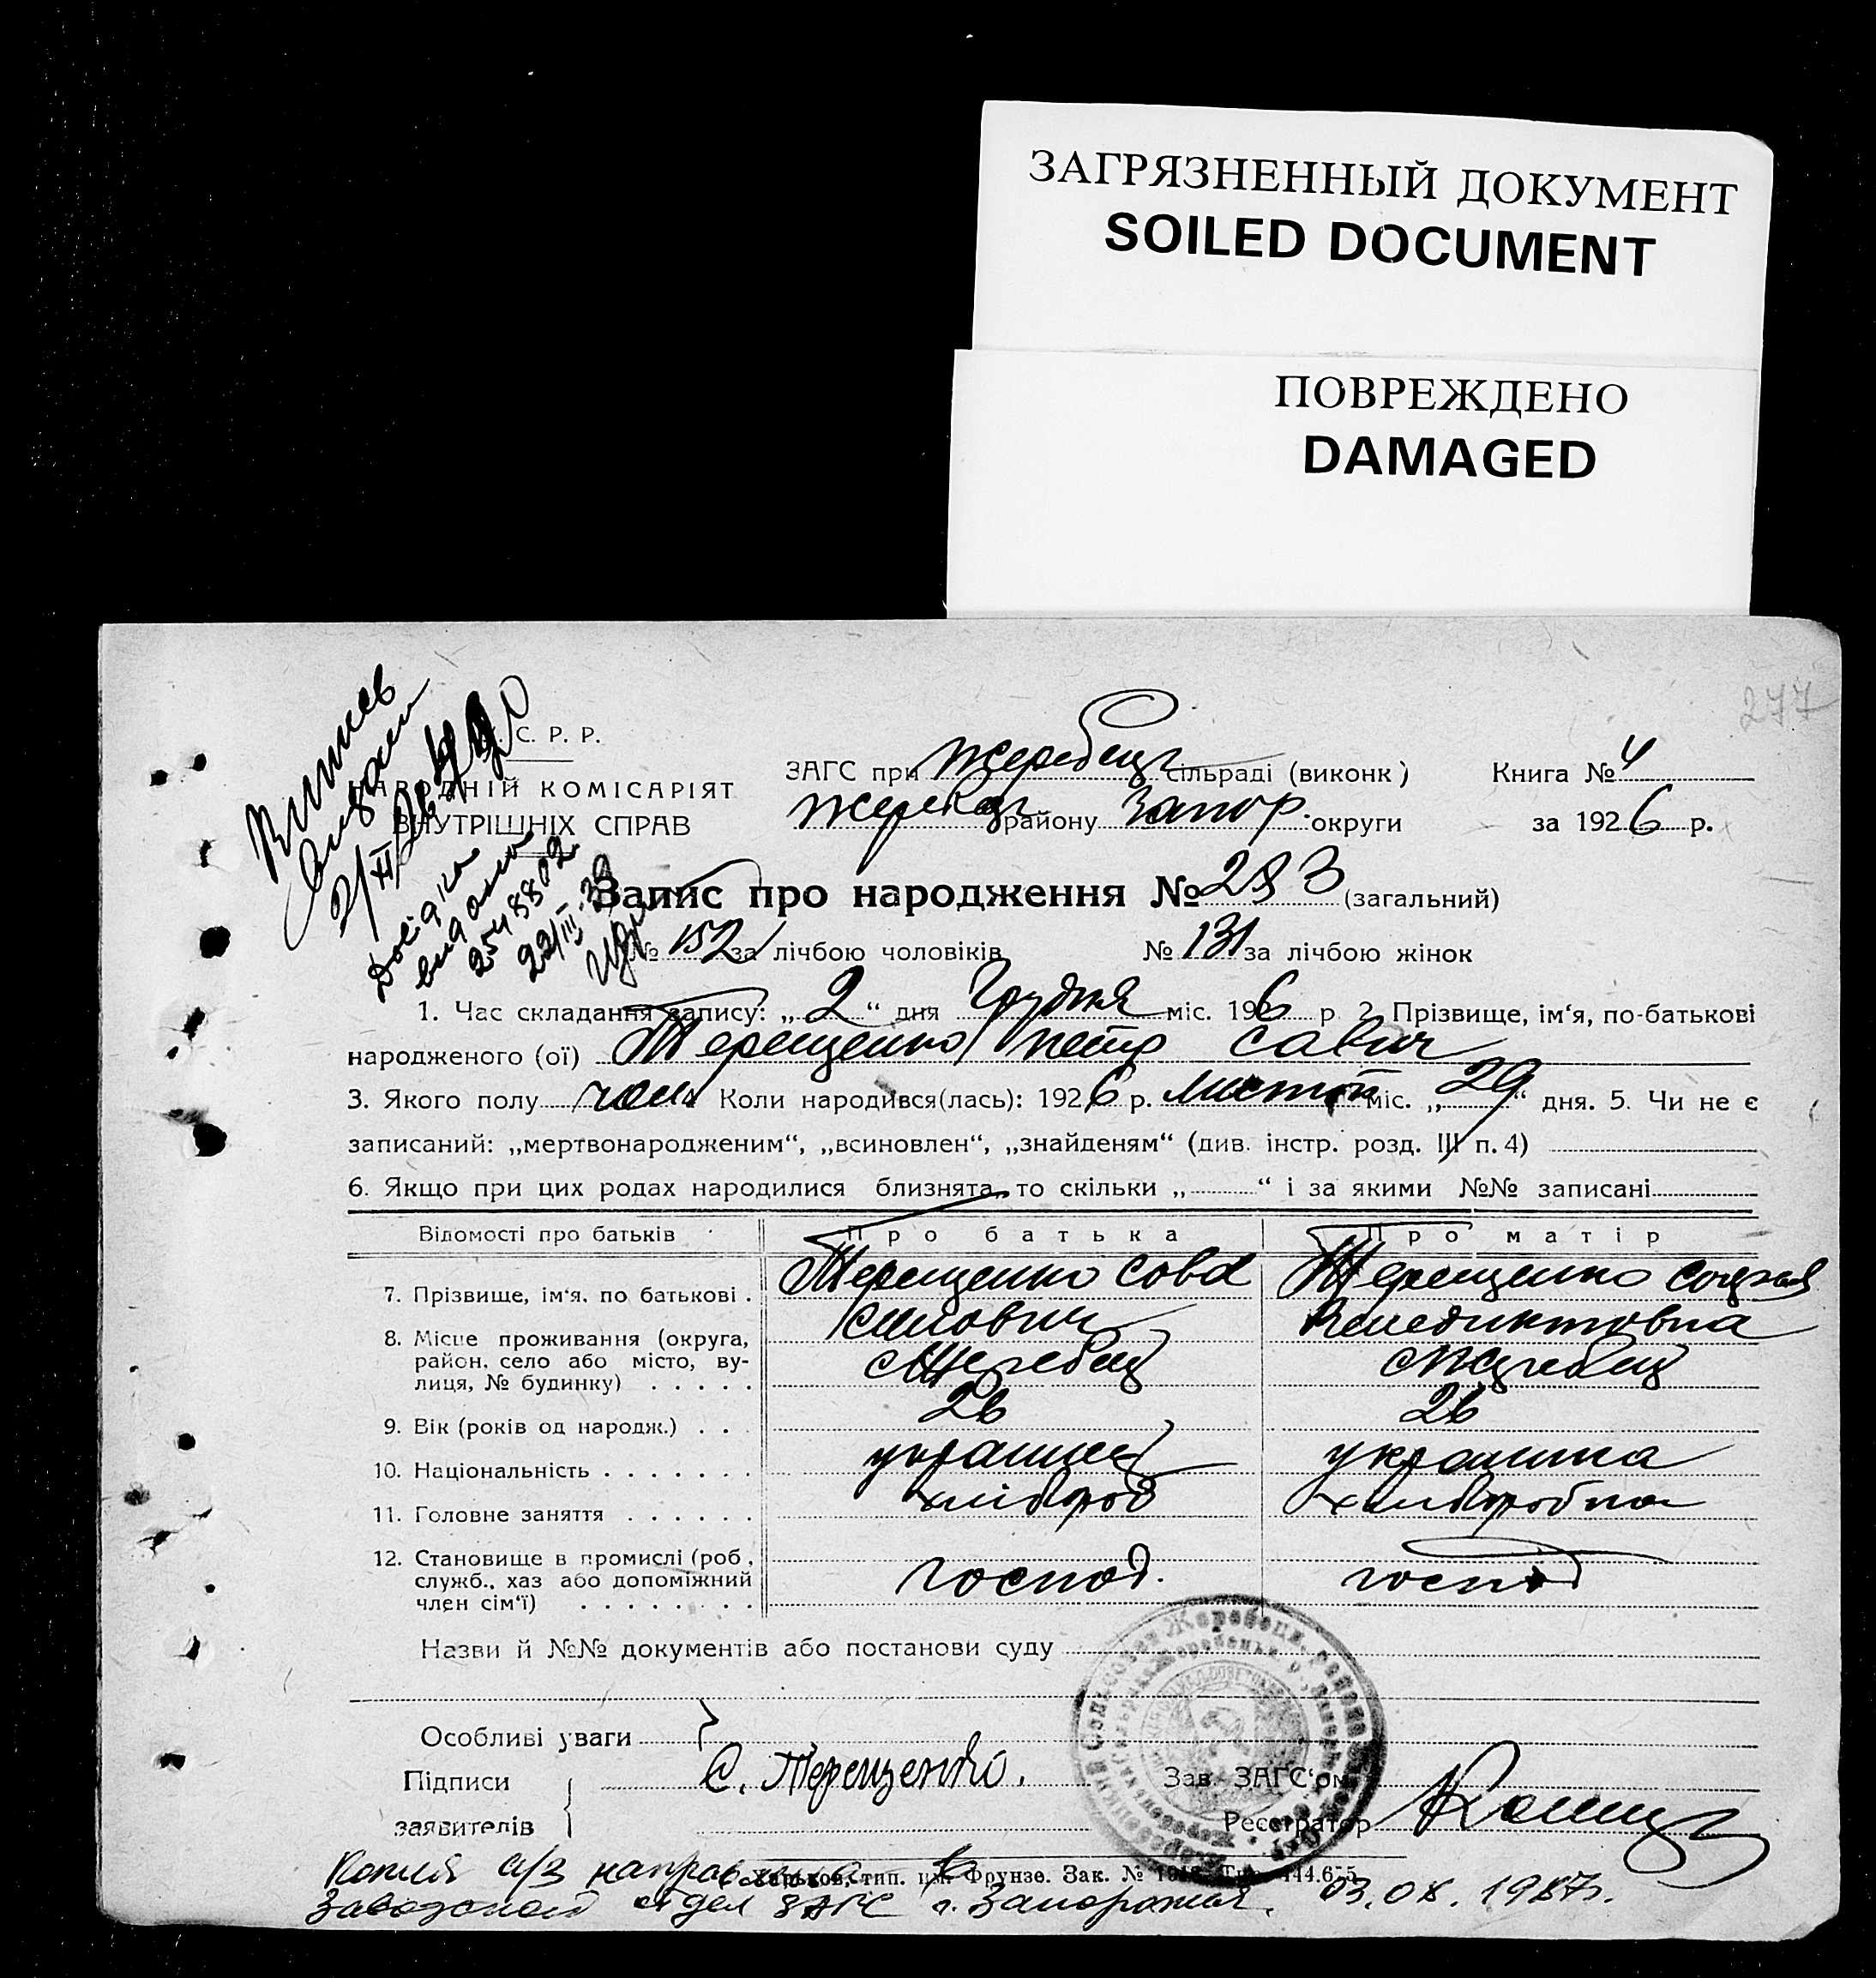 ЗАГРЯЗНЕННЫЙ ДОКУМЕНТ
SOILED DOCUMENT
ПОВРЕЖДЕНО
DAMAGED
277
Витяг
видали
Довідка
видана
2548802
22/III-39
С. Р. Р.
НАРОДНІЙ КОМІСАРІЯТ
ВНУТРІШНІХ СПРАВ
ЗАГС при Жеребец сільраді (виконк)
Книга № 4
району Запор. округи
за 1926 р.
Запис про народження № 283 (загальний)
№ 152 за лічбою чоловіків
№ 131 за лічбою жінок
1. Час складання запису: „2“ дня Грудня міс. 1926 р 2. Прізвище, ім‘я, по-батькові
народженого (ої) Терещенко Петр Савич
3. Якого полу чол. Коли народився(лась): 1926 р. Листоп міс. „29“ дня. 5. Чи не є
записаний: „мертвонародженим“, „всиновлен“, „знайденям“ (див. інстр. розд. III п. 4)
6. Якщо при цих родах народилися близнята, то скільки „ “ і за якими №№ записані
Відомості про батьків
Про батька
Про матір
7. Прізвище, ім‘я, по батькові .
Терещенко Сова
Терещенко
Венедиктовна
8. Місце проживання (округа,
район, село або місто, ву-
лиця, № будинку) . . . . .
с Жеребец
с Жеребец
9. Вік (років од народж.) . . .
26
26
10. Національність . . . . . . .
украинец
украинка
11. Головне заняття . . . . . .
хлібороб
хлиборобка
12. Становище в промислі (роб.,
служб., хаз або допоміжний
член сім‘ї) . . . . . . . .
господ.
господ
Назви й №№ документів або постанови суду
Особливі уваги
Підписи
заявителів
С. Терещенко.
Зав. ЗАГС‘ом
Реєстратор
Харьков, тип. им. Фрунзе. Зак. №
Копия а/з направлена в
Заводской отдел ЗАГС г. Запорожья. 03.08.1987г.